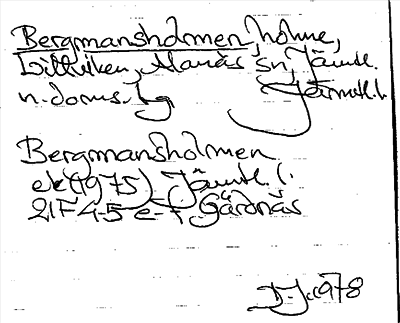 Bergmansholmen, holme,
Lillviken, Alanäs sn, Jämtl.
n. doms. lg Jämtl. l.
Bergmansholmen
ek (1975) Jämtl. l.
21F 4-5 e-f Gärdnäs
1978